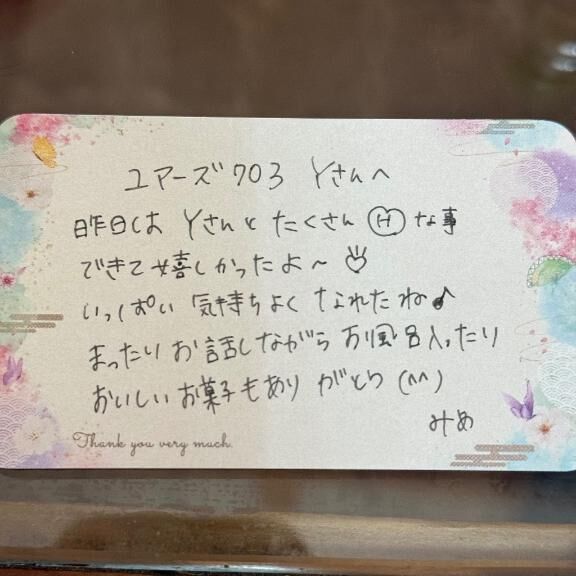 ユアーズ703 Yさんへ
昨日は Yさんと たくさん Ⓗな事
できて 嬉しかったよ〜♡
いっぱい 気持ちよく なれたね♪
まったり お話しながら お風呂入ったり
おいしい お菓子もあり がとう (^^)
みめ
Thank you very much.